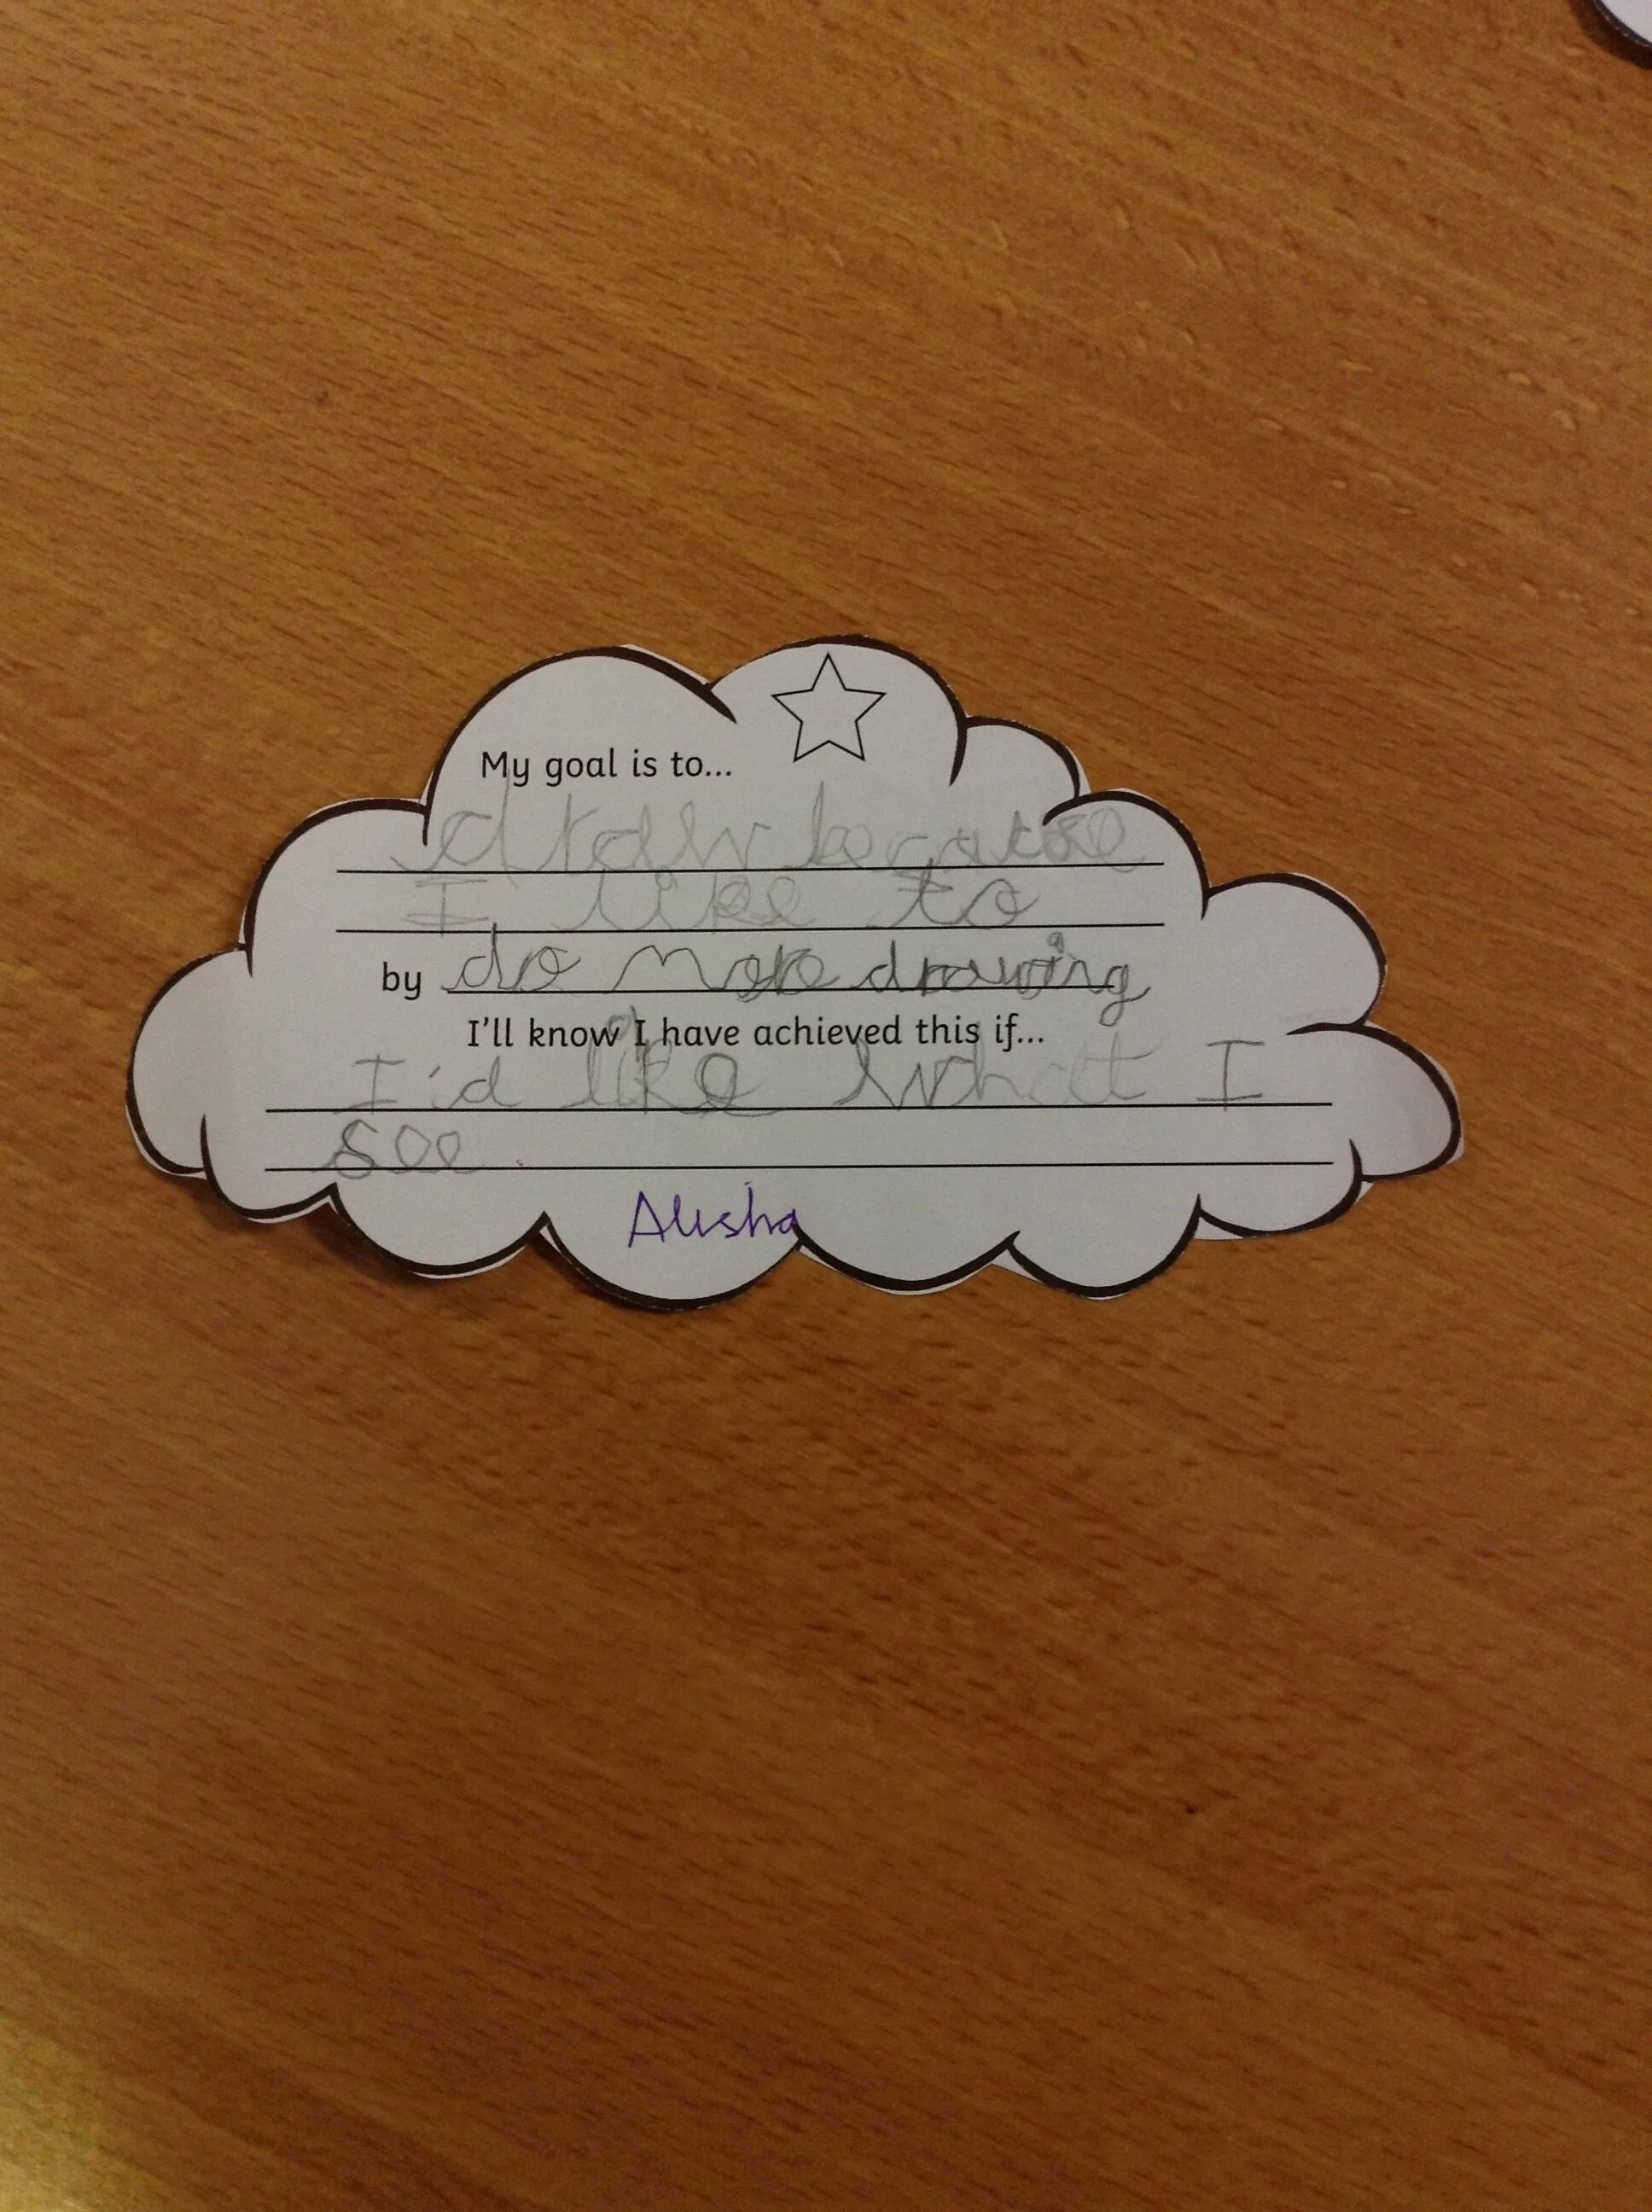 My goal is to...
draw because
I like to
by do more drawing
I'll know I have achieved this if...
I'd like what I
see
Alisha